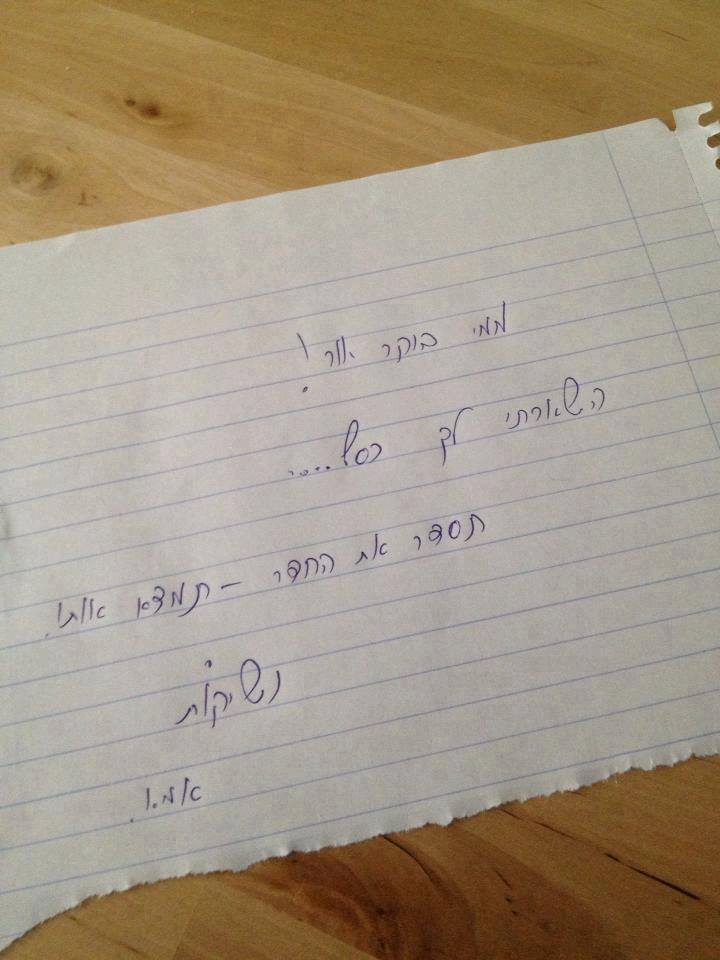 ממי בוקר אור!
השארתי לך כסף....
תסדר את החדר – תמצא אותו.
נשיקות
אמא.